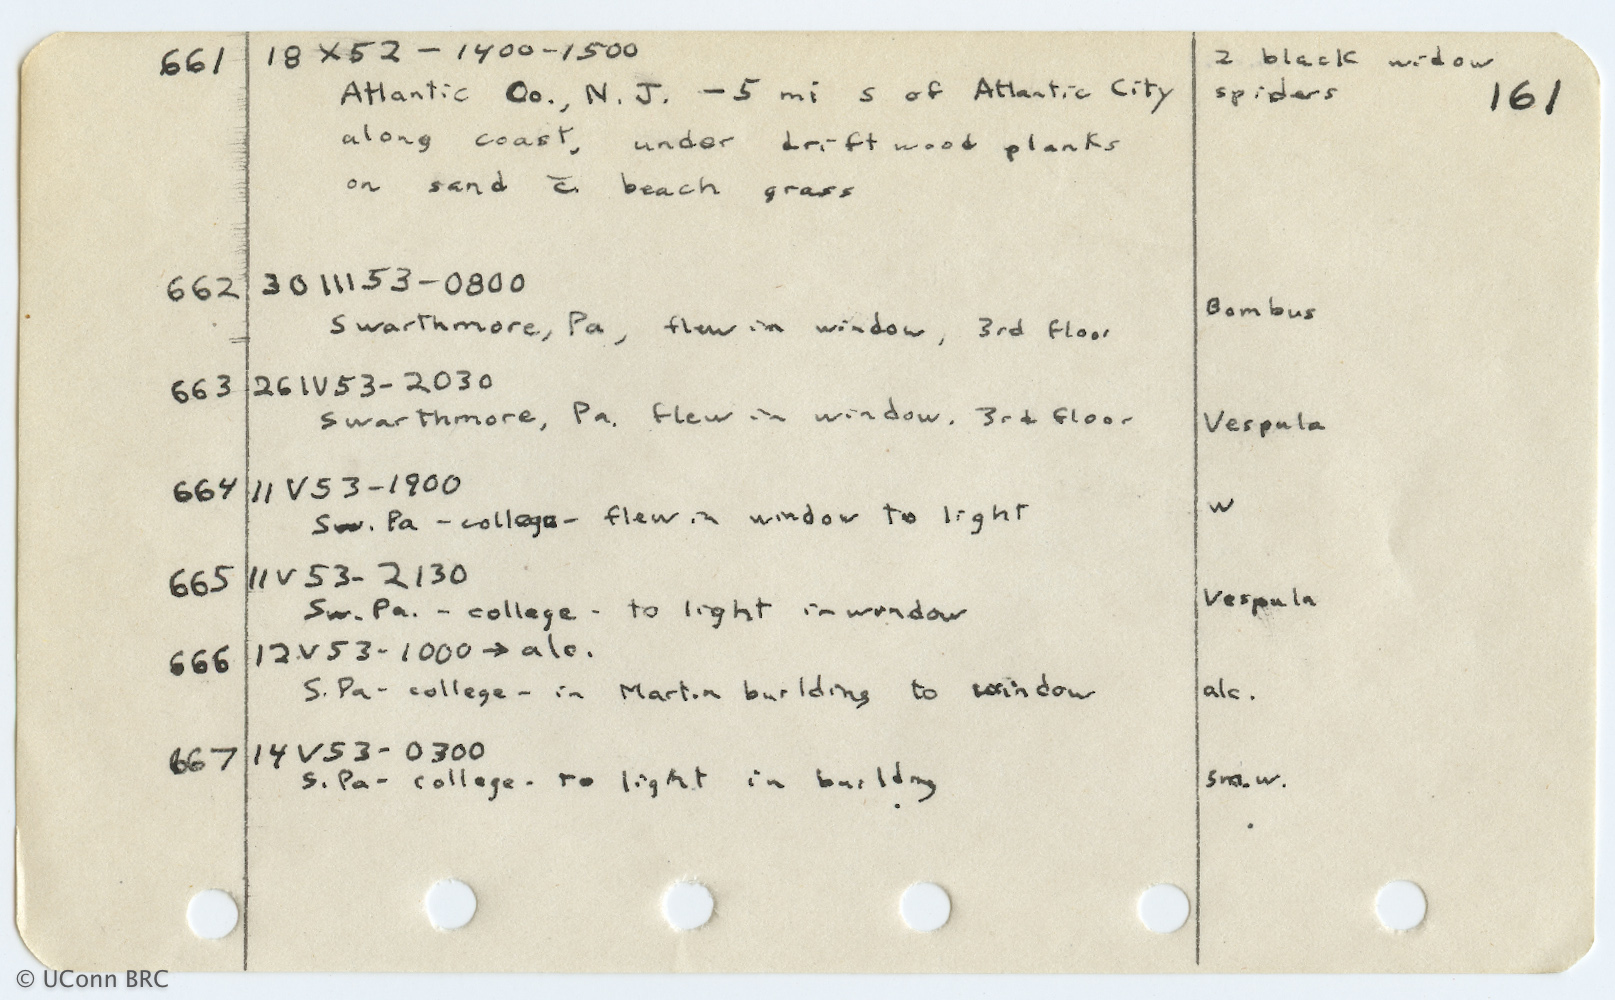 161
661 18 X 52 – 1400-1500 2 black widow
Atlantic Co., N. J. – 5 mi s of Atlantic City spiders
along coast, under driftwood planks
on sand c̄ beach grass
662 30 III 53 – 0800
Swarthmore, Pa, flew in window, 3rd floor Bombus
663 26 IV 53 – 2030
Swarthmore, Pa. flew in window. 3rd floor Vespula
664 11 V 53 – 1900
Sw. Pa – college – flew in window to light w
665 11 V 53 – 2130
Sw. Pa. – college – to light in window Vespula
666 12 V 53 – 1000 → alc.
S. Pa – college – in Martin building to window alc.
667 14 V 53 – 0300
S. Pa – college – to light in building sm. w.
© UConn BRC